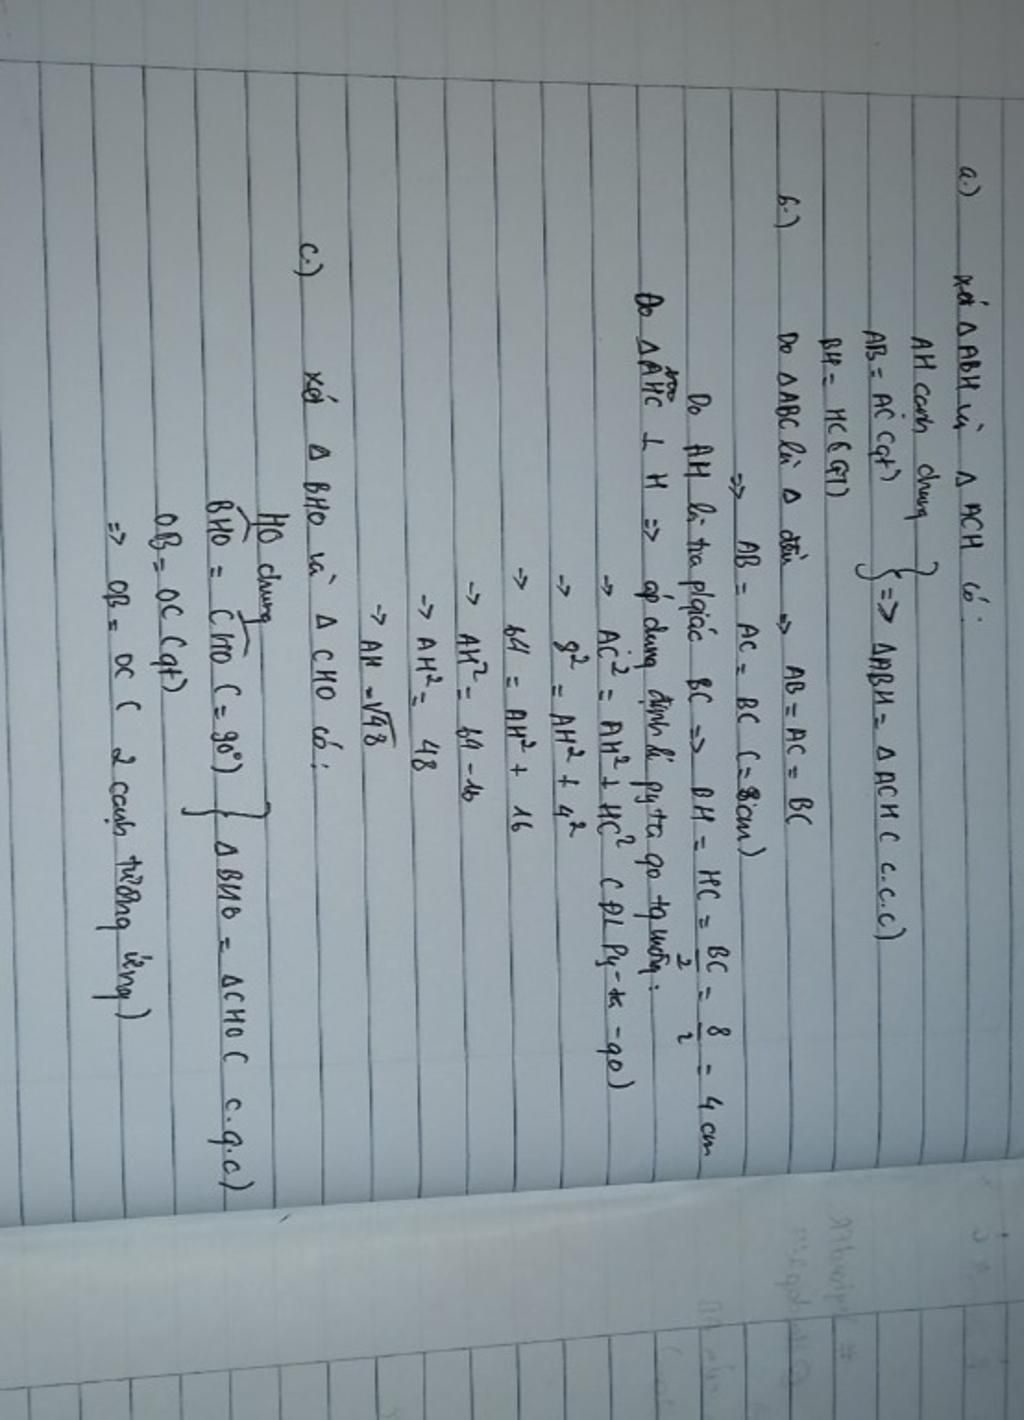 a.) xét ΔABH và Δ ACH có:
AH cạnh chung
AB = AC (gt) } => ΔABH = ΔACH( c.c.c)
BH = HC (GT)
b.) Do ΔABC là Δ đều => AB = AC = BC
=> AB = AC = BC (= 8cm)
Do AH là tia p/giác BC => BH = HC = BC/2 = 8/2 = 4 cm
Do ΔAHC ⊥ H => áp dụng định lí pytago ta :
→ AC² = AH² + HC² (ĐL Py-ta-go)
→ 8² = AH² + 4²
→ 64 = AH² + 16
→ AH² = 64 - 16
→ AH² = 48
→ AH = √48
c.) xét Δ BHO và Δ CHO có:
HO chung
BHO = CHO (= 90°) } Δ BHO = ΔCHO( c.g.c)
OB = OC (gt)
=> OB = OC ( 2 cạnh tương ứng)